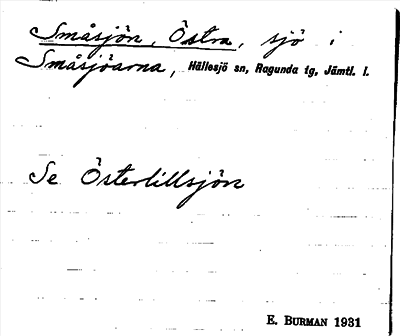 Småsjön, Östra, sjö i
Småsjöarna, Hällesjö sn, Ragunda tg, Jämtl. l.
Se Österlillsjön
E. BURMAN 1931